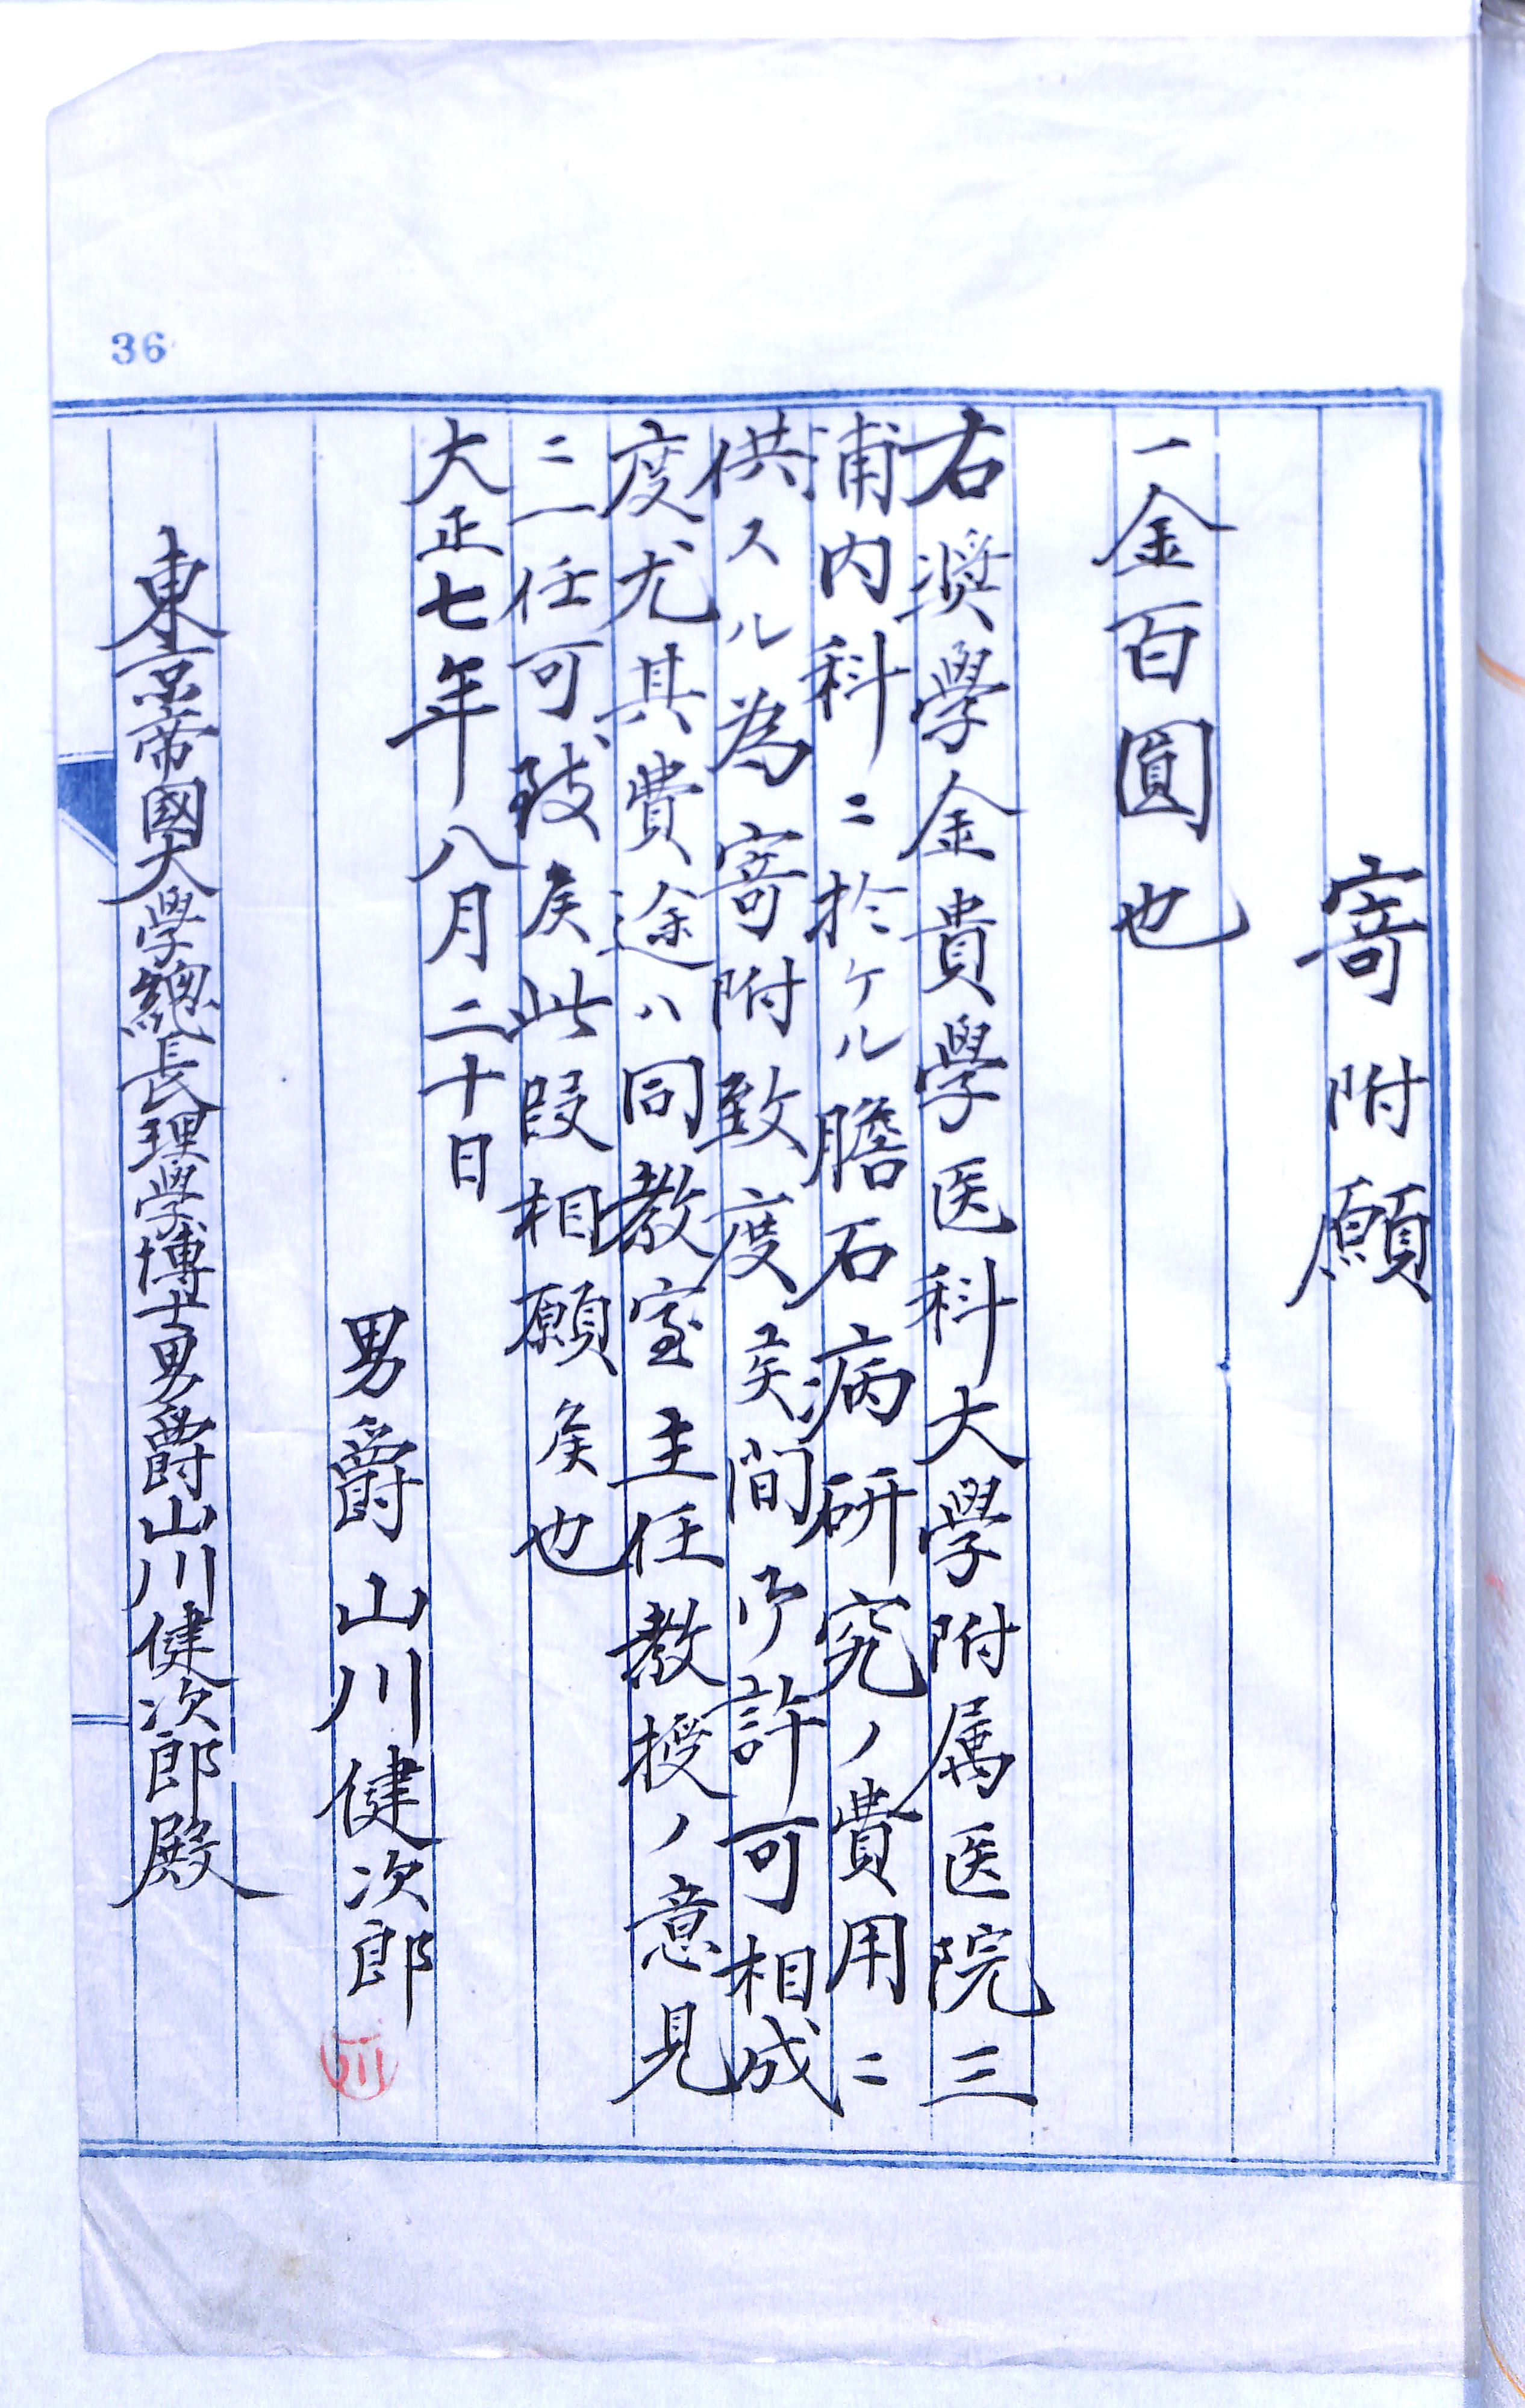 36
寄附願
一金百圓也
右奨學金貴學医科大學附属医院三
浦内科ニ於ケル膽石病研究ノ費用ニ
供スル為寄附致度候間御許可相成
度尤其費途ハ同教室主任教授ノ意見
ニ一任可致候此段相願候也
大正七年八月二十日
男爵山川健次郎
東京帝國大學總長理學博士男爵山川健次郎殿